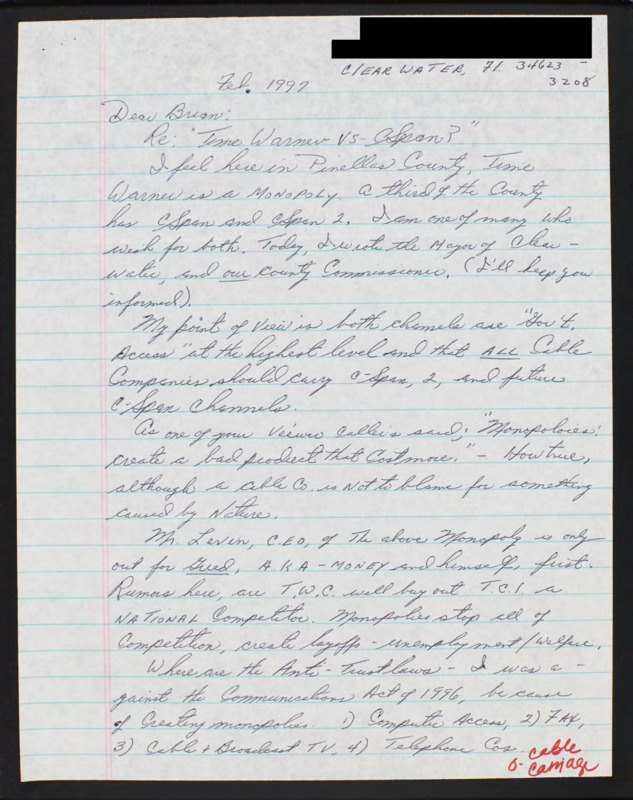 CLEARWATER, Fl. 34623 -
3208
Feb. 1997
Dear Brian:
Re: "Time Warner VS- CSpan?"
I feel here in Pinellas County, Time
Warner is a MONOPOLY. A third of the County
has CSpan and CSpan 2. I am one of many who
wish for both. Today, I wrote the Mayor of Clear-
water, and our County Commissioner. (I'll keep you
informed).
My point of View is both channels are "Gov't.
Access" at the highest level and that ALL Cable
Companies should carry C-Span, 2, and future
C-Span Channels.
As one of your Viewer Callers said; "Monopolies:
create a bad product that Cost more." - How true,
although a cable Co. is Not to blame for something
caused by Nature.
Mr. Levin, CEO, of The above Monopoly is only
out for Greed, A.K.A - MONEY and himself, first.
Rumors here, are T.W.C. will buy out T.C.I. a
NATIONAL Competitor. Monopolies stop all of
Competition, create layoffs - unemployment/Welfare.
Where are the Anti-Trust laws - I was a -
gainst the Communications Act of 1996, because
of Creating monopolies. 1) Computer Access, 2) FAX,
3) Cable + Broadcast TV, 4) Telephone Cos.
cable
carriage